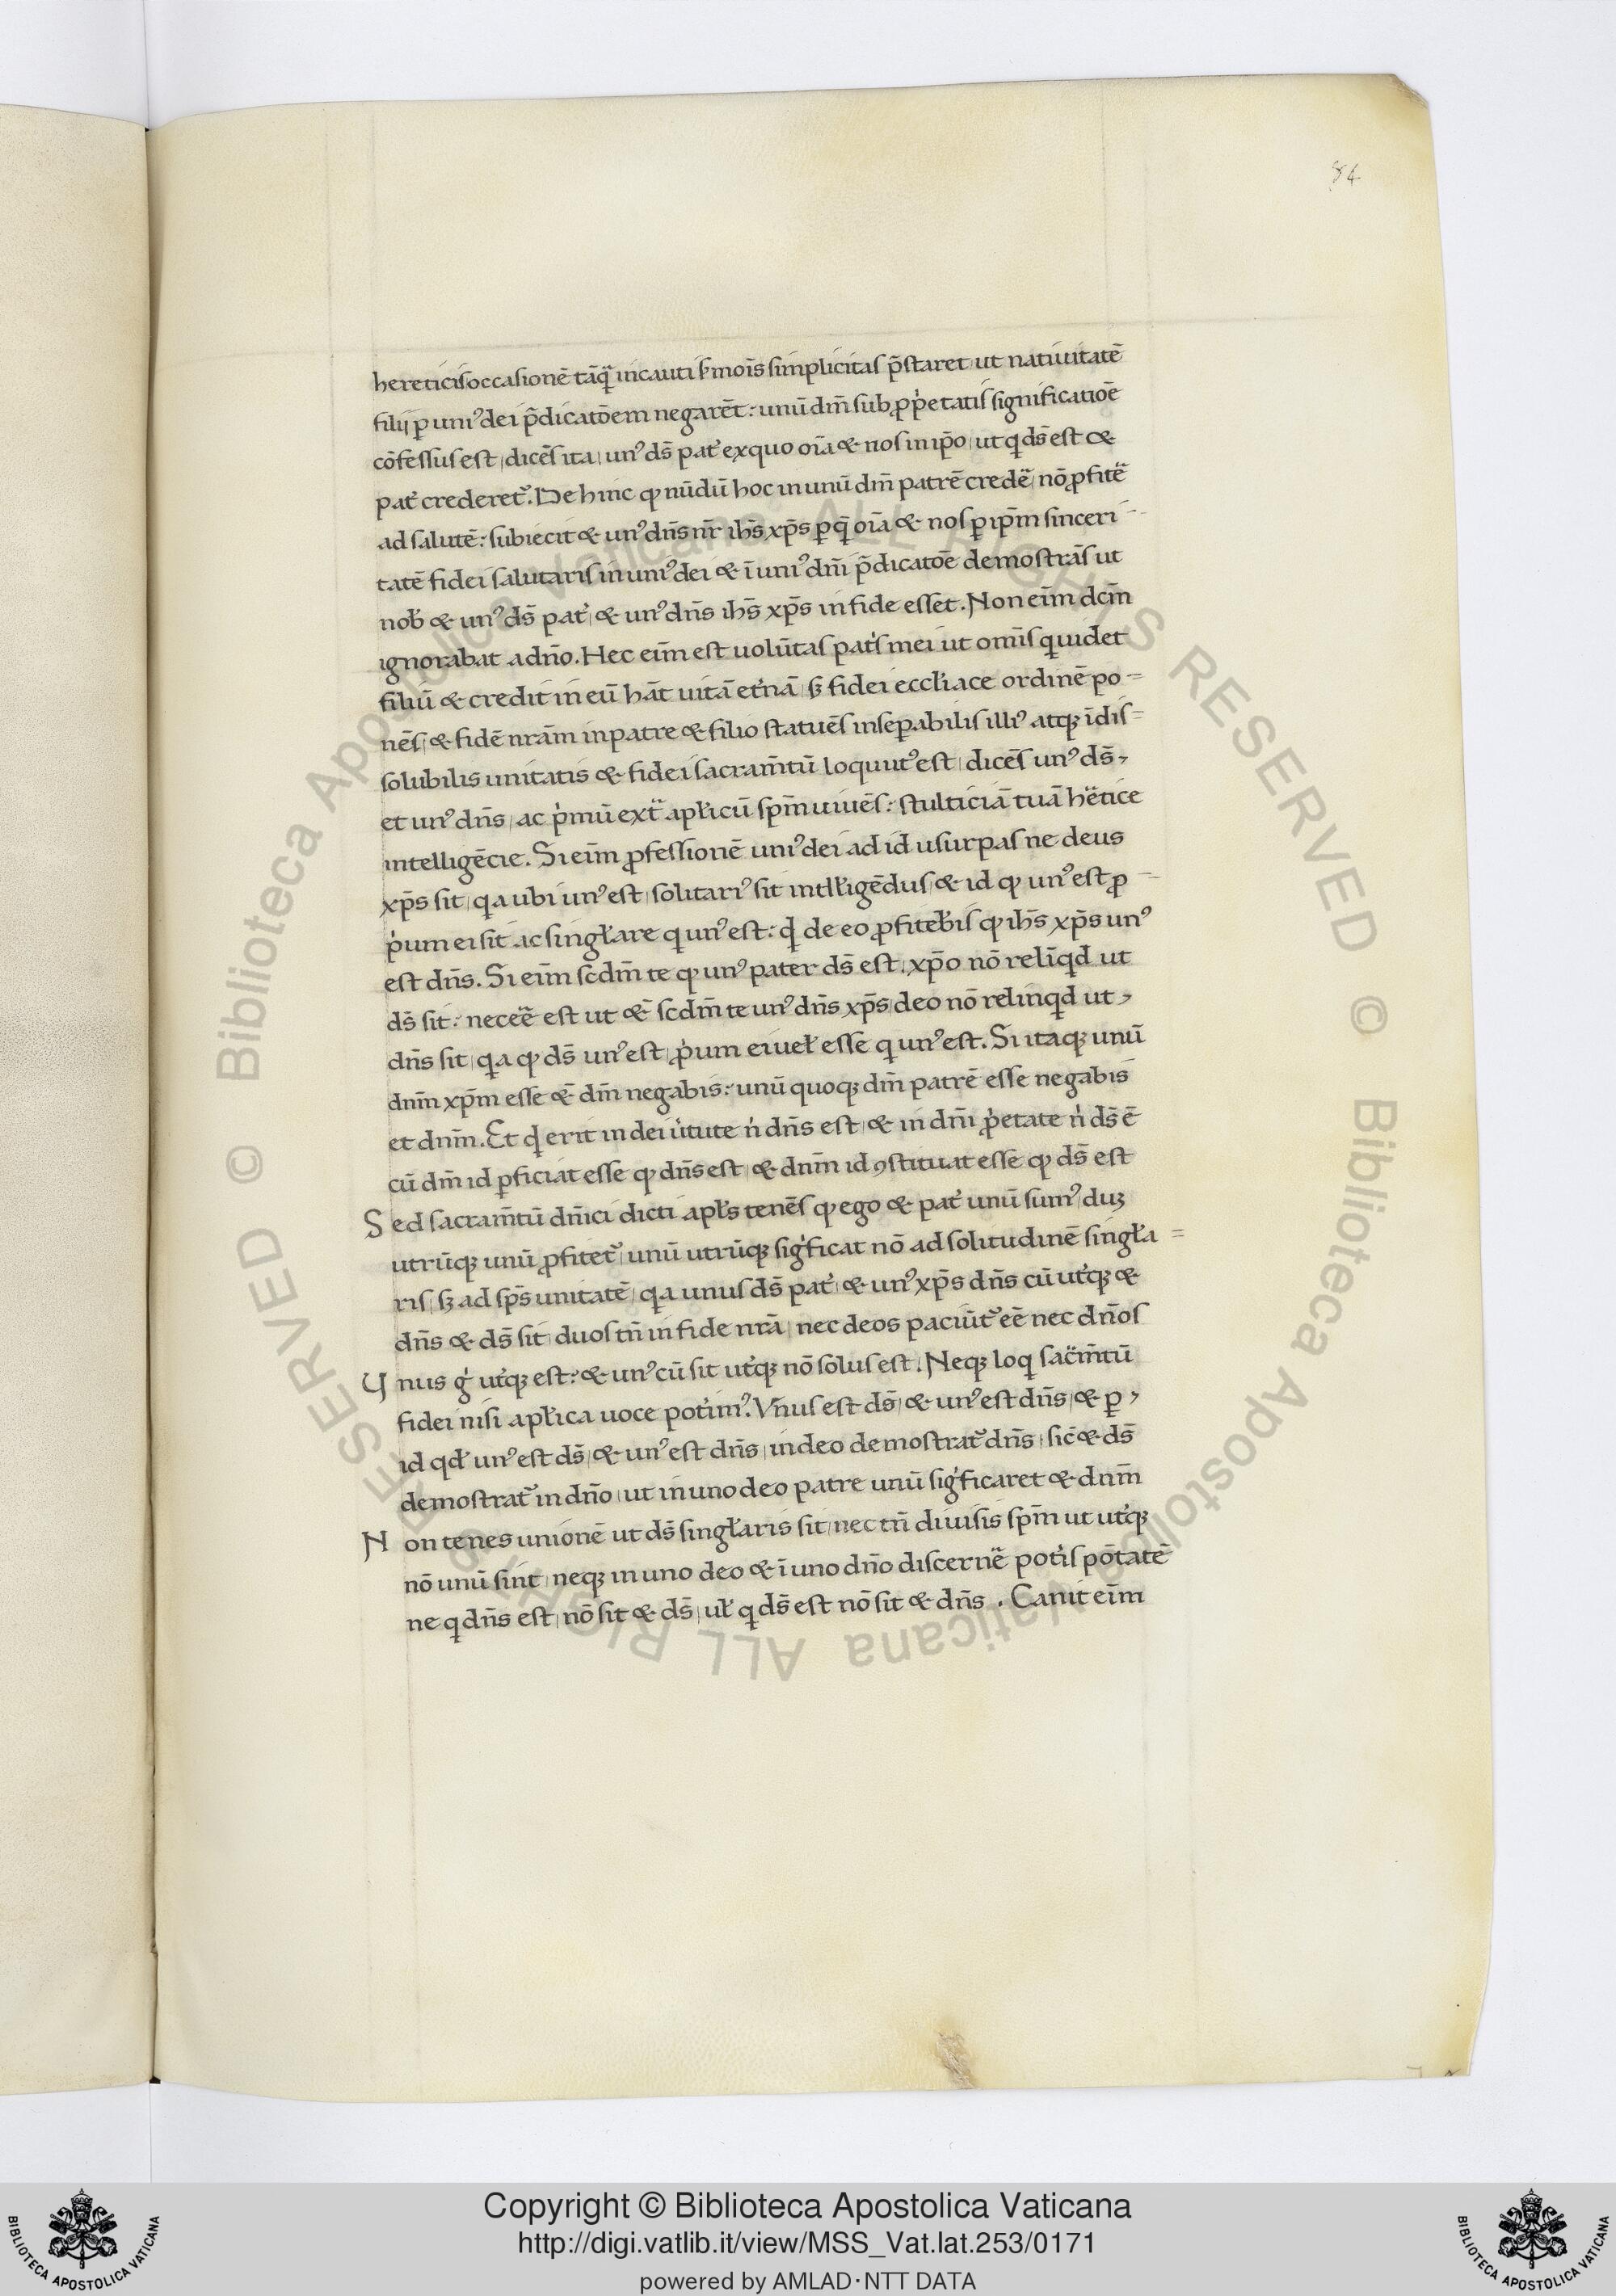 84
hereticis occasionē tāq̄ incauti s̄mōis simplicitas p̄staret ut nativitatē
filij ꝑ uniꝰ dei p̄dicatōem negarēt: unū dm̄ sub ꝓp̍etatis significatiōē
cōfessus est, dicēs ita, unꝰ ds̄ pat̍ ex quo oīa & nos in ip̄o, ut q ds̄ est &
pat̍ crederetᷣ. De hinc ꝙ nūdū hoc in unū dm̄ patrē credē nō ꝓfitē
ad salutē: subiecit & unꝰ dn̄s nr̄ ih̄s xp̄s ꝑ q̄ oīa & nos ꝑ ip̄m sinceri-
tatē fidei salutaris in uniꝰ dei & ī uniꝰ dn̄i p̄dicatōē demostrās ut
nob̄ & unꝰ ds̄ pat̍, & unꝰ dn̄s ih̄s xp̄s in fide esset. Non eīm dcm̄
ignorabat a dn̄o. Hec eīm est uolūtas pat̍s mei ut om̄is q uidet
filiū & credit in eū hāt uitā et̍nā, sꝫ fidei eccl̄iace ordinē po=
nēs, & fidē nrām in patre & filio statuēs insepꝑabilis illiꝰ atqꝫ īdis=
solubilis unitatis & fidei sacram̄tū loquutꝰ est, dicēs unꝰ ds̄,
et unꝰ dn̄s, ac p̍mū ext̄ apl̄icū sp̄m uiuēs: stulticiā tuā hētice
intelligēcie. Si eīm ꝓfessionē uniꝰ dei ad id usurpas ne deus
xp̄s sit, qa ubi unꝰ est, solitariꝰ sit intl̄igēdus, & id ꝙ unꝰ est ꝓ-
p̍um ei sit ac singl̄are q unꝰ est: qd̍ de eo ꝓfiteb̄is ꝙ ih̄s xp̄s unꝰ
est dn̄s. Si eīm sc̄dm̄ te ꝙ unꝰ pater ds̄ est, xp̄o nō relīqd ut
ds̄ sit: neceē est ut & sc̄dm̄ te unꝰ dn̄s xp̄s, deo nō relinqd ut,
dn̄s sit, qa ꝙ ds̄ unꝰ est, ꝓp̍um ei uel̄ esse q unꝰ est. Si itaqꝫ unū
dnm̄ xp̄m esse & dm̄ negabis: unū quoqꝫ dm̄ patrē esse negabis
et dnm̄. Et qd̍ erit in dei u̍tute n̍ dn̄s est, & in dn̄i ꝓp̍etate n̍ ds̄ ē
cū dm̄ id ꝑficiat esse ꝙ dn̄s est, & dnm̄ id ꝯstituat esse ꝙ ds̄ est
Sed sacram̄tū dn̄ici dicti apl̄s tenēs ꝙ ego & pat̍ unū sumꝰ, duꝫ
utrūqꝫ unū ꝓfitetᷣ, unū utrūqꝫ sig̍ficat nō ad solitudinē singl̄a=
ris, sꝫ ad sp̄s unitatē, qa unus ds̄ pat̍ & unꝰ xp̄s dn̄s cū ut̍qꝫ &
dn̄s & ds̄ sit, duos tn̄ in fide nrā, nec deos paciūtᷣ eē nec dn̄os
Unus g̍ ut̍qꝫ est: & unꝰ cū sit ut̍qꝫ nō solus est. Neqꝫ loq sac̄m̄tū
fidei nisi apl̄ica uoce pot̍imꝰ. Vnus est ds̄, & unꝰ est dn̄s, & ꝑ,
id qd̄ unꝰ est ds̄, & unꝰ est dn̄s, in deo demostratᷣ dn̄s, sic̄ & ds̄
demostratᷣ in dn̄o, ut in uno deo patre unū sig̍ficaret & dnm̄
Non tenes unionē ut ds̄ singl̄aris sit, nec tn̄ diuisis sp̄m ut ut̍qꝫ
nō unū sint, neqꝫ in uno deo & ī uno dn̄o discernē pot̍is pōtatē
ne q dn̄s est, nō sit & ds̄, ul̄ q ds̄ est nō sit & dn̄s. Canit eīm
Copyright © Biblioteca Apostolica Vaticana
http://digi.vatlib.it/view/MSS_Vat.lat.253/0171
powered by AMLAD·NTT DATA
BIBLIOTECA APOSTOLICA VATICANA
BIBLIOTECA APOSTOLICA VATICANA
© Biblioteca Apostolica Vaticana ALL RIGHTS RESERVED © Biblioteca Apostolica Vaticana ALL RIGHTS RESERVED